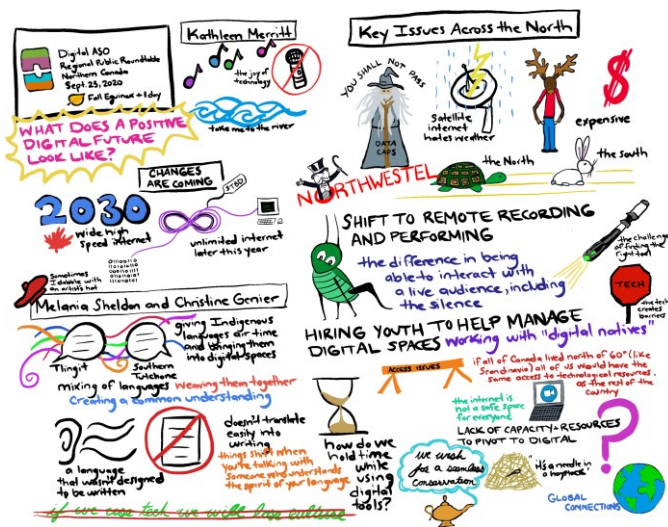 Digital ASO
Regional Public Roundtable
Northern Canada
Sept. 23, 2020
Fall Equinox + 1 day
WHAT DOES A POSITIVE
DIGITAL FUTURE
LOOK LIKE?
Kathleen Merritt
the joy of
technology
take me to the river
CHANGES
ARE COMING
2030
wide high
speed internet
$ TBD
unlimited internet
later this year
Sometimes
I dabble with
an artist's hat
Melania Sheldon and Christine Genier
Tlingit
Southern
Tutchone
giving Indigenous
languages air time
and bringing them
into digital spaces
mixing of languages weaving them together
Creating a common understanding
a language
that wasn't designed
to be written
doesn't translate
easily into
writing
things shift when
you're talking with
someone who understands
the spirit of your language
if we use tech we will lose culture
Key Issues Across the North
YOU SHALL NOT PASS
DATA
CAPS
Satellite
internet
hates weather
$
expensive
NORTHWESTEL
the North
the south
SHIFT TO REMOTE RECORDING
AND PERFORMING
the difference in being
able to interact with
a live audience, including
the silence
the challenge
of finding the
right tool
TECH
the tech
creates
barriers
HIRING YOUTH TO HELP MANAGE
DIGITAL SPACES working with "digital natives"
ACCESS ISSUES
if all of Canada lived north of 60° (like
Scandinavia) all of us would have the
same access to technological resources
as the rest of the
country
the internet is
not a safe space
for everyone
LACK OF CAPACITY + RESOURCES
TO PIVOT TO DIGITAL
how do we
hold time
while
using
digital
tools?
we wish
for a seamless
conversation
"it's a needle in
a haystack"
?
GLOBAL
CONNECTIONS